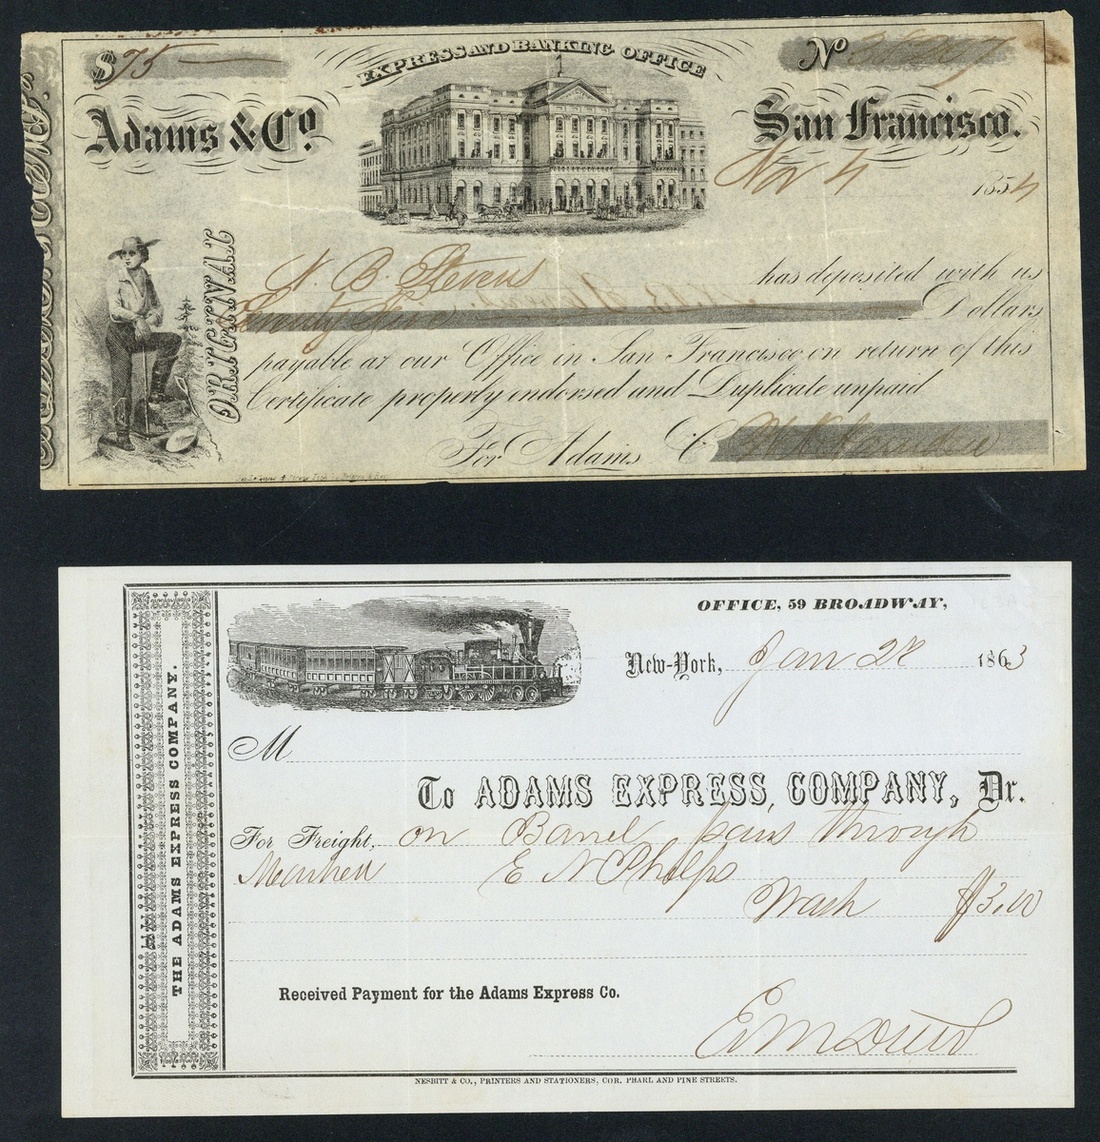 EXPRESS AND BANKING OFFICE
$75
No
Adams & Co.
San Francisco.
Nov 4 1854
ORIGINAL
N. B. Stevens has deposited with us
Seventy Five Dollars
payable at our Office in San Francisco on return of this
Certificate properly endorsed and Duplicate unpaid
For Adams & Co
OFFICE, 59 BROADWAY,
New-York, Jan 28 1863
M
To ADAMS EXPRESS COMPANY, Dr.
For Freight, on Barrel pars through
E N Phelps
Wash $3.00
Received Payment for the Adams Express Co.
THE ADAMS EXPRESS COMPANY.
NESBITT & CO., PRINTERS AND STATIONERS, COR. PEARL AND PINE STREETS.